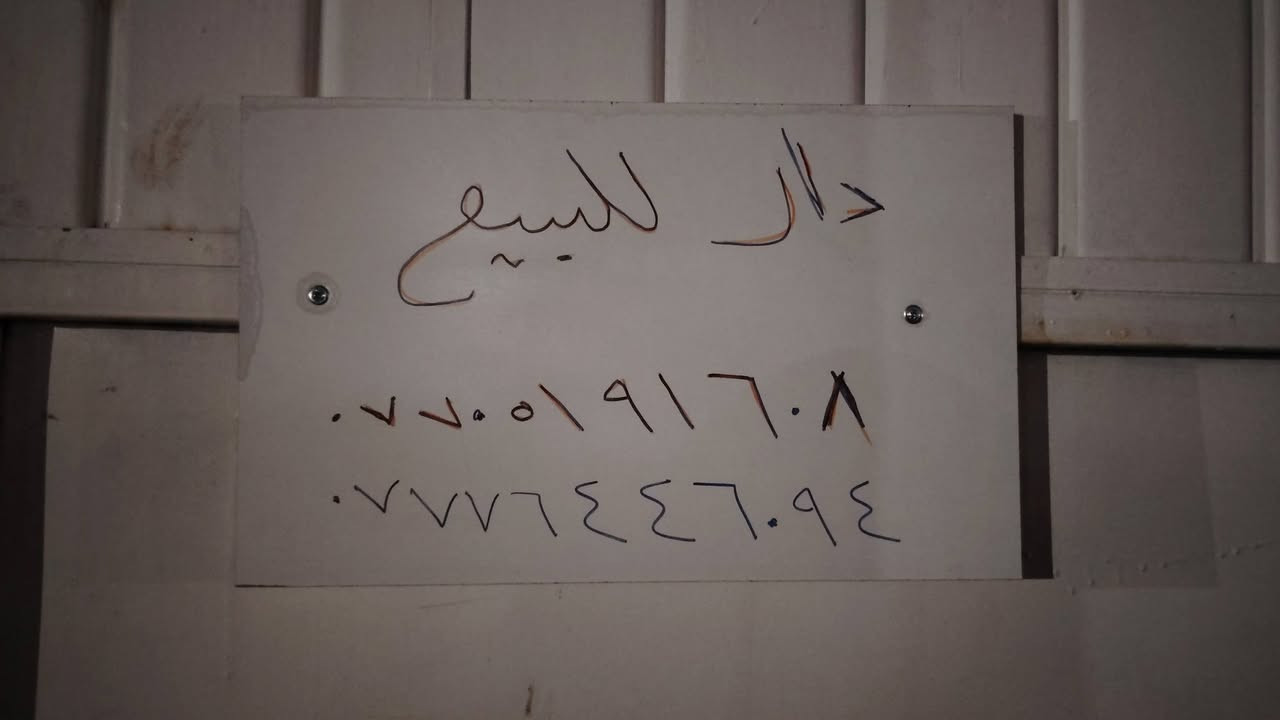 دار للبيع
٠٧٧٠٥١٩١٦٠٨
٠٧٧٧٦٤٤٦٠٩٤